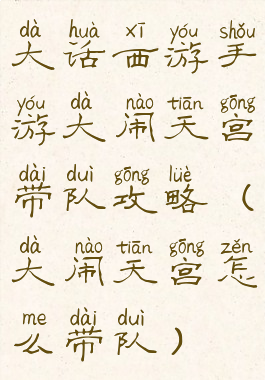 dà huà xī yóu shǒu
大话西游手
yóu dà nào tiān gōng
游大闹天宫
dài duì gōng lüè
带队攻略（
dà nào tiān gōng zěn
大闹天宫怎
me dài duì
么带队）